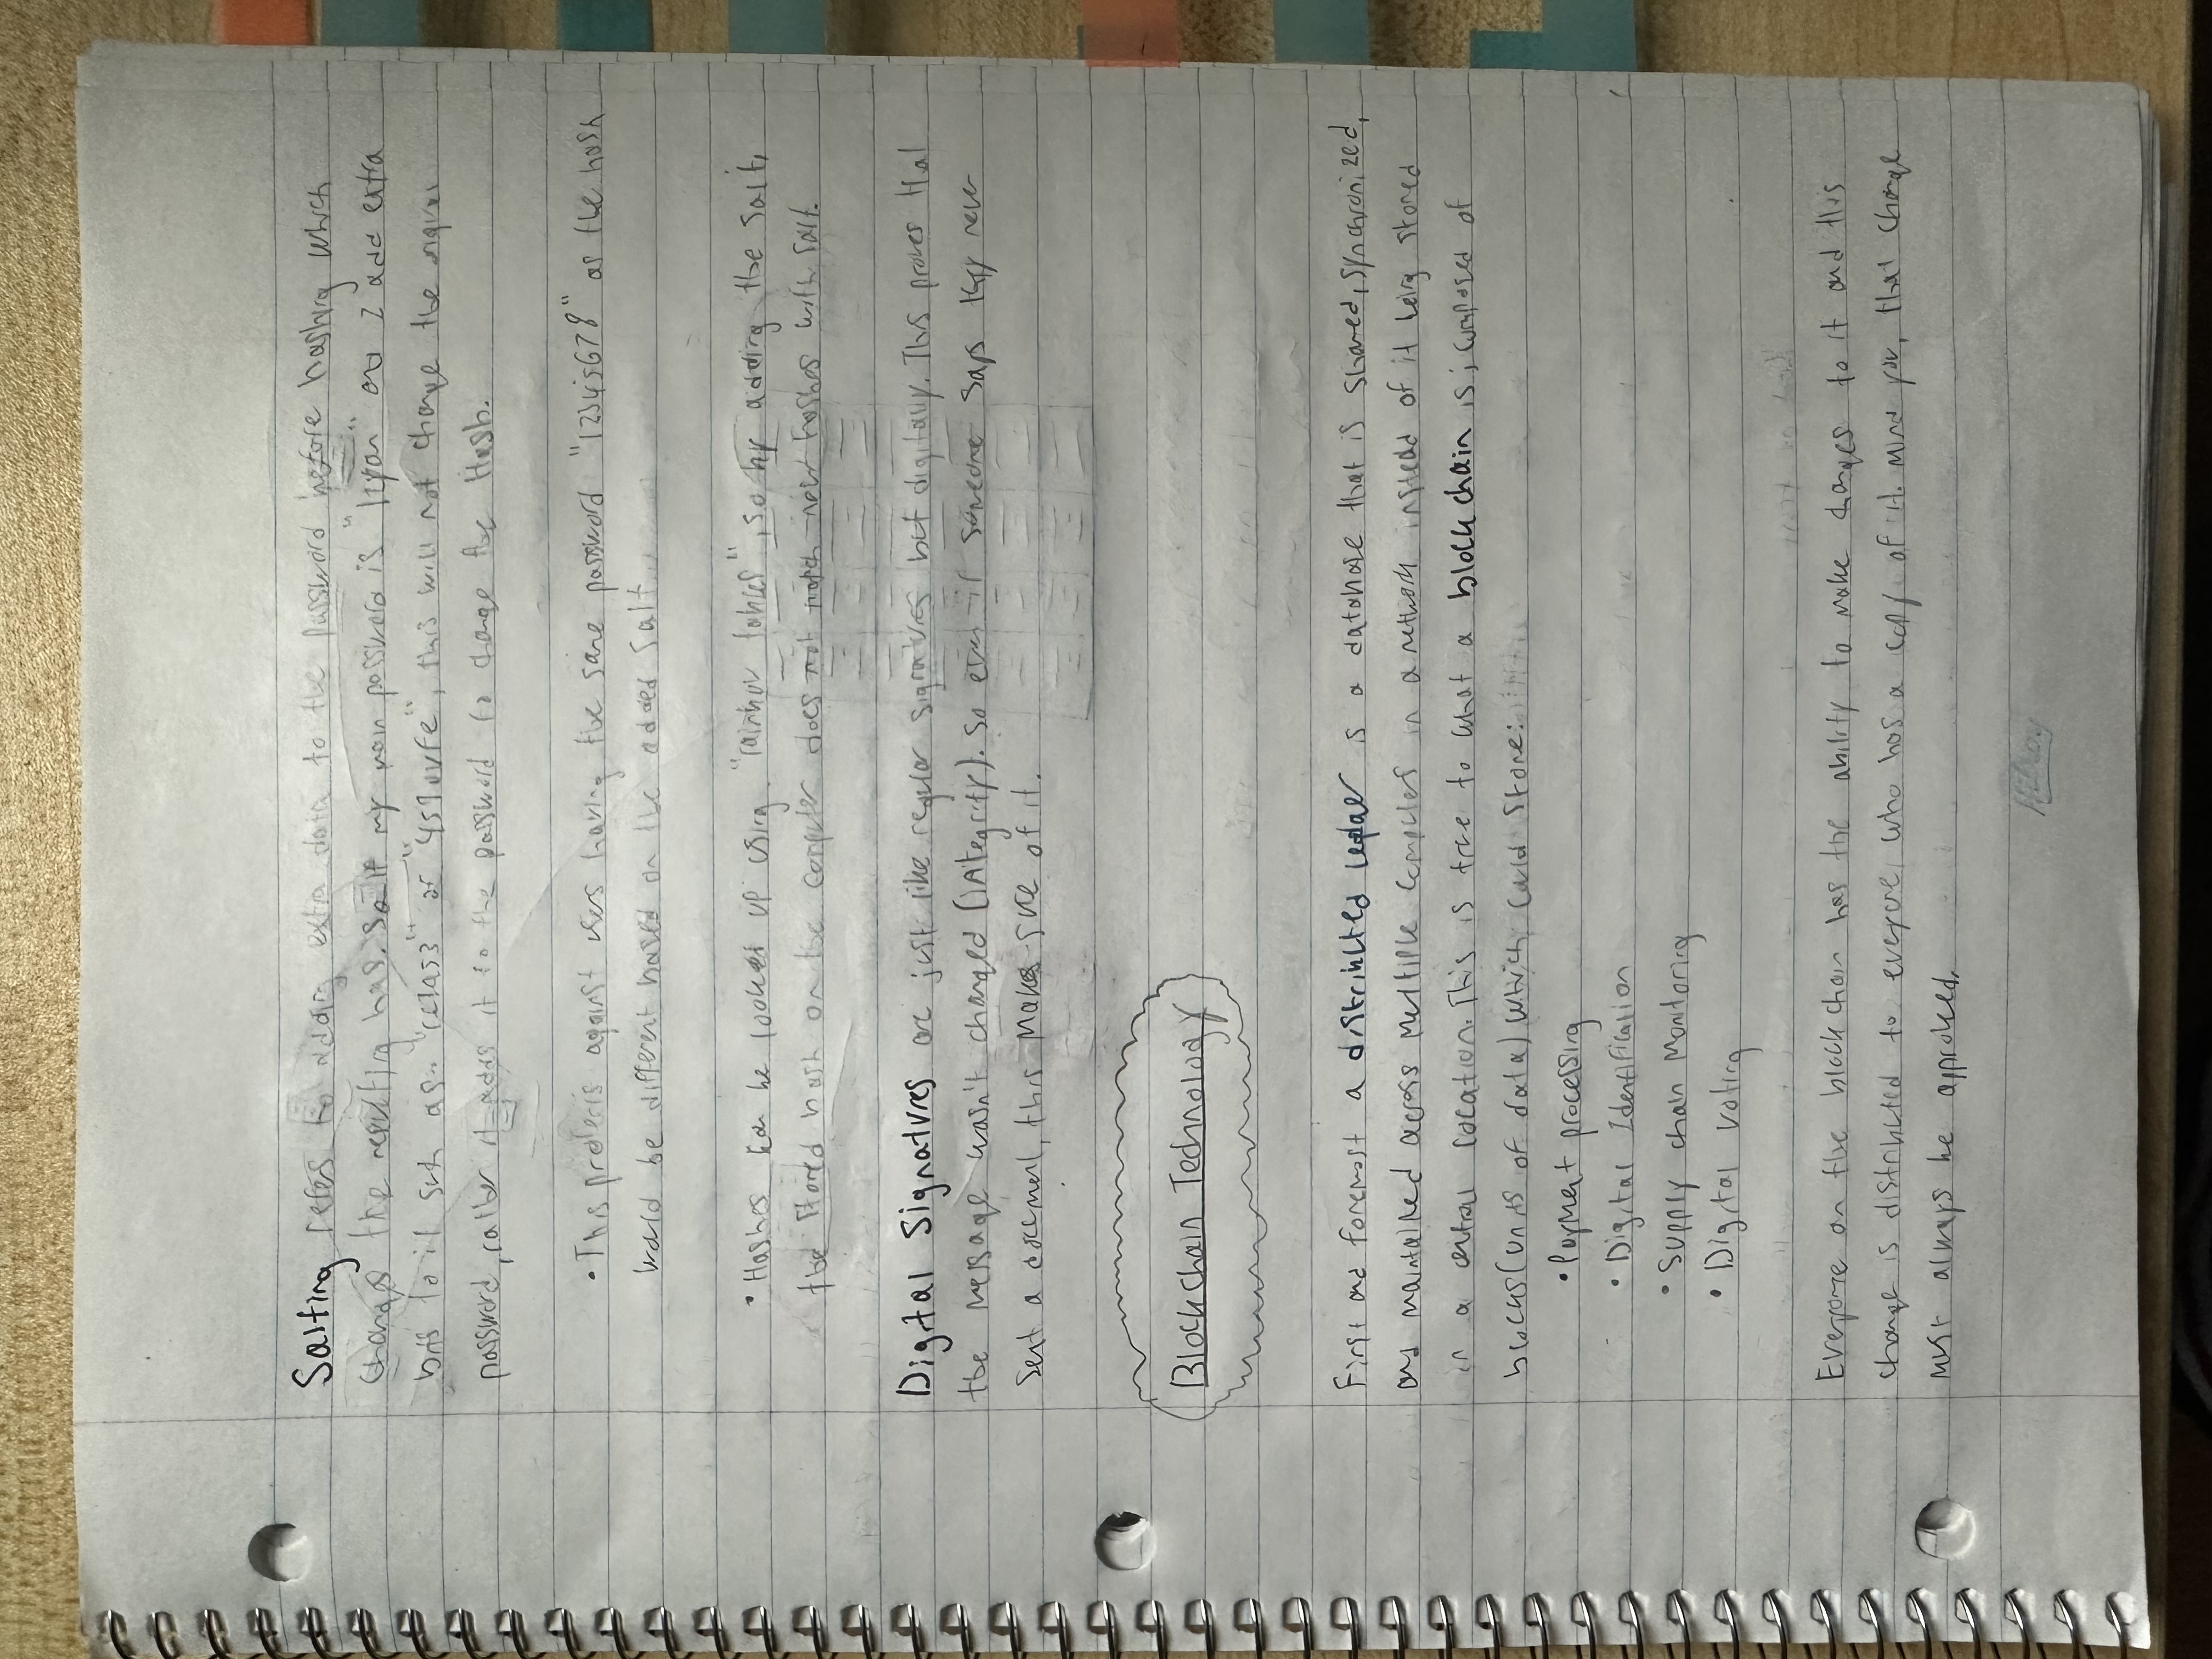 Salting refers to adding extra data to the password before hashing which
changes the resulting has. So if my main password is "1zyan" and I add extra
bits to it such as "re1as3" or, this will not change the
password, rather it adds it to the password to change the Hash.
• This protects against users having the same password "12345678" as the hash
would be different based on the added salt
• Hashes can be looked up using "rainbow tables", so by adding the salt,
the stored hash on the computer does not match new hashes with salt.
Digital Signatures are just like regular signatures but digitally. This proves that
the message wasn't changed (integrity). So even if someone says they never
sent a document, this makes sure of it.
Blockchain Technology
First and foremost a distributed ledger is a database that is shared, synchronized,
and maintained across multiple computers in a network instead of it being stored
in a central location. This is true to what a blockchain is; composed of
blocks (units of data) which could store:
• Payment processing
• Digital Identification
• Supply chain Monitoring
• Digital voting
Everyone on the blockchain has the ability to make changes to it and this
change is distributed to everyone who has a copy of it. Mind you, that change
must always be approved.
Hilroy